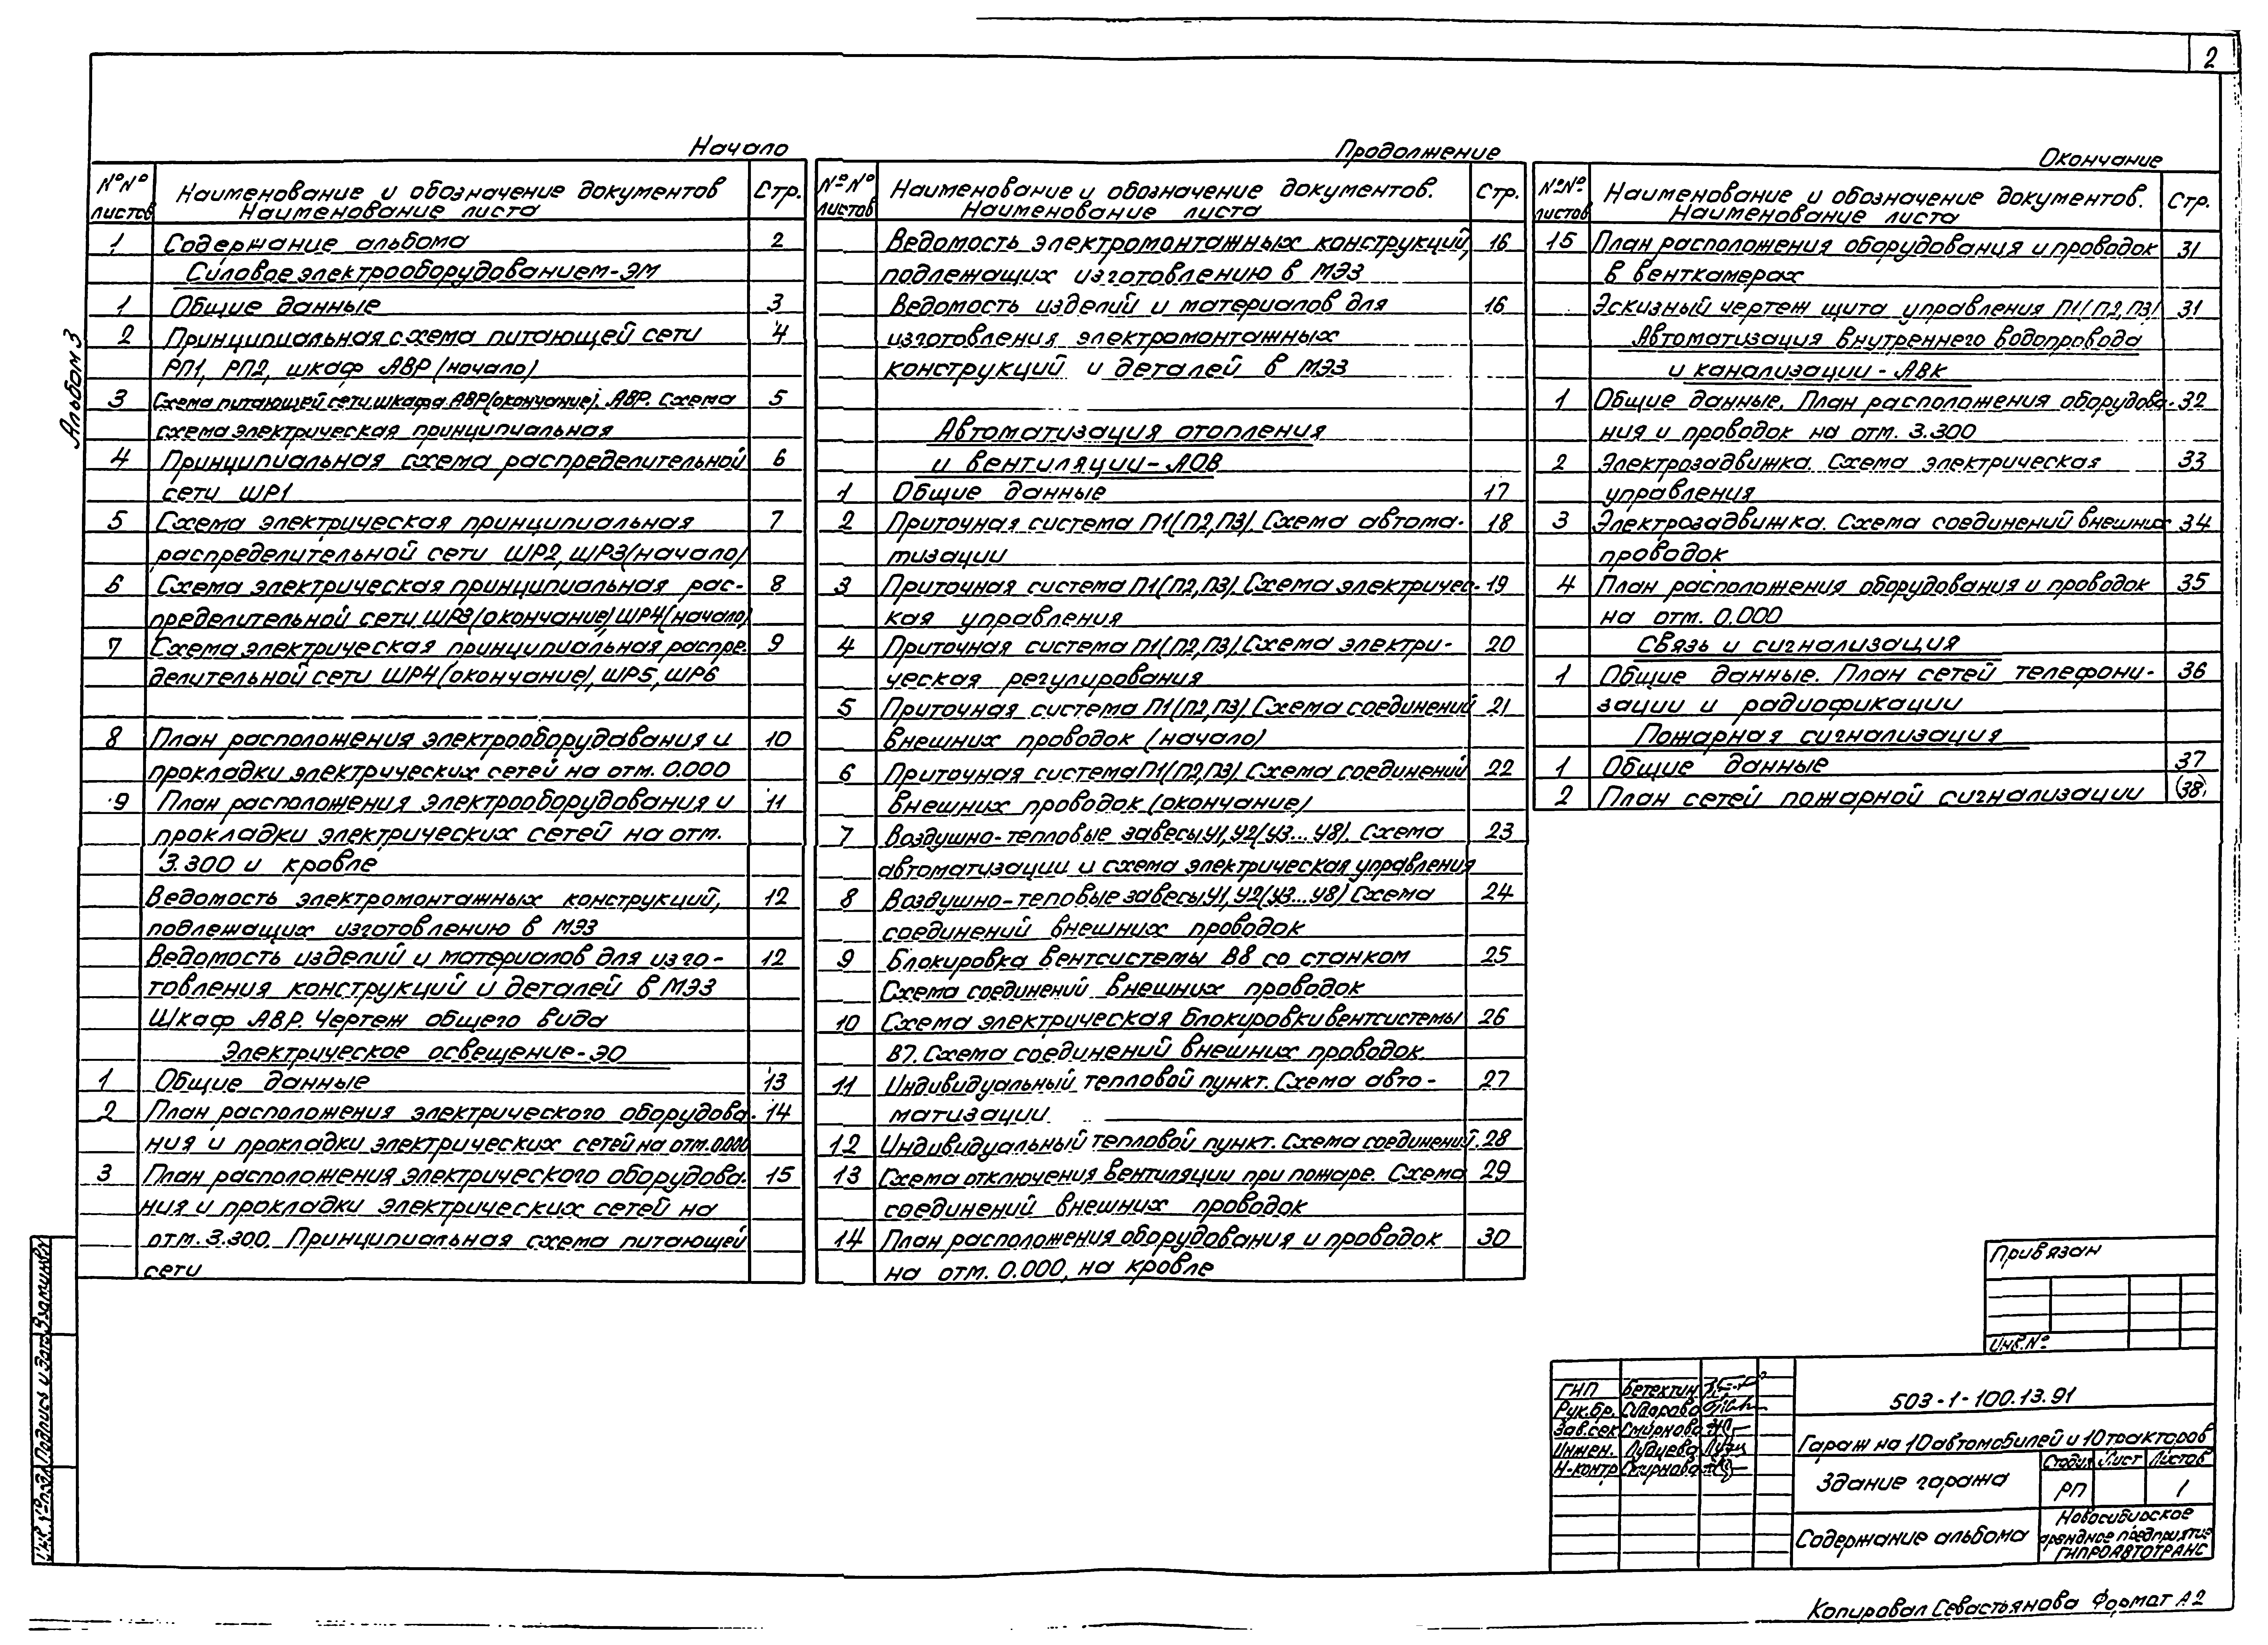 2
Альбом 3
Начало
№№ листов
Наименование и обозначение документов
Наименование листа
Стр.
1 Содержание альбома 2
Силовое электрооборудованием-ЭМ
1 Общие данные 3
2 Принципиальная схема питающей сети 4
РП1, РП2, шкаф АВР (начало)
3 Схема питающей сети шкафа АВР(окончание). АВР. Схема 5
схема электрическая принципиальная
4 Принципиальная схема распределительной 6
сети ШР1
5 Схема электрическая принципиальная 7
распределительной сети ШР2, ШР3(начало)
6 Схема электрическая принципиальная рас- 8
пределительной сети ШР3(окончание) ШР4(начало)
7 Схема электрическая принципиальная распре. 9
делительной сети ШР4(окончание), ШР5, ШР6
8 План расположения электрооборудавания и 10
прокладки электрических сетей на отм. 0.000
9 План расположения электрооборудования и 11
прокладки электрических сетей на отм.
3.300 и кровле
Ведомость электромонтажных конструкций, 12
подлежащих изготовлению в МЭЗ
Ведомость изделий и материалов для изго- 12
товления конструкций и деталей в МЭЗ
Шкаф АВР. Чертеж общего вида
Электрическое освещение-ЭО
1 Общие данные 13
2 План расположения электрического оборудова- 14
ния и прокладки электрических сетей на отм.0.000
3 План расположения электрического оборудова- 15
ния и прокладки электрических сетей на
отм. 3.300. Принципиальная схема питающей
сети
Продолжение
№№ листов
Наименование и обозначение документов.
Наименование листа
Стр.
Ведомость электромонтажных конструкций, 16
подлежащих изготовлению в МЭЗ
Ведомость изделий и материалов для 16
изготовления электромонтажных
конструкций и деталей в МЭЗ
Автоматизация отопления
и вентиляции-АОВ
1 Общие данные 17
2 Приточная система П1(П2,П3). Схема автома- 18
тизации
3 Приточная система П1(П2,П3). Схема электричес- 19
кая управления
4 Приточная система П1(П2,П3). Схема электри- 20
ческая регулирования
5 Приточная система П1(П2,П3). Схема соединений 21
внешних проводок (начало)
6 Приточная система П1(П2,П3). Схема соединений 22
внешних проводок (окончание)
7 Воздушно-тепловые завесы У1, У2(У3...У8). Схема 23
автоматизации и схема электрическая управления
8 Воздушно-теповые завесы У1, У2(У3...У8) Схема 24
соединений внешних проводок
9 Блокировка вентсистемы В8 со станком 25
Схема соединений внешних проводок
10 Схема электрическая блокировки вентсистемы 26
В7. Схема соединений внешних проводок
11 Индивидуальный тепловой пункт. Схема авто- 27
матизации
12 Индивидуальный тепловой пункт. Схема соединений. 28
13 Схема отключения вентиляции при пожаре. Схема 29
соединений внешних проводок
14 План расположения оборудования и проводок 30
на отм. 0.000, на кровле
Окончание
№№ листов
Наименование и обозначение документов.
Наименование листа
Стр.
15 План расположения оборудования и проводок 31
в венткамерах
Эскизный чертеж щита управления П1(П2,П3) 31
Автоматизация внутреннего водопровода
и канализации-АВК
1 Общие данные. План расположения оборудова- 32
ния и проводок на отм. 3.300
2 Электрозадвижка. Схема электрическая 33
управления
3 Электрозадвижка. Схема соединений внешних 34
проводок
4 План расположения оборудования и проводок 35
на отм. 0.000
Связь и сигнализация
1 Общие данные. План сетей телефони- 36
зации и радиофикации
Пожарная сигнализация
1 Общие данные 37
2 План сетей пожарной сигнализации (38)
Привязан
Инв.№
ГИП Бетехтин
Рук.бр. Сидорова
Зав.сек Смирнова
Инжен.
Н-контр Смирнова
503-1-100.13.91
Гараж на 10 автомобилей и 10 тракторов
Здание гаража
Стадия Лист Листов
РП 1
Содержание альбома
Новосибирское
арендное предприятие
ГИПРОАВТОТРАНС
Взам.инв.№
Подпись и дата
Инв.№ подл
Копировал Севастьянова Формат А2